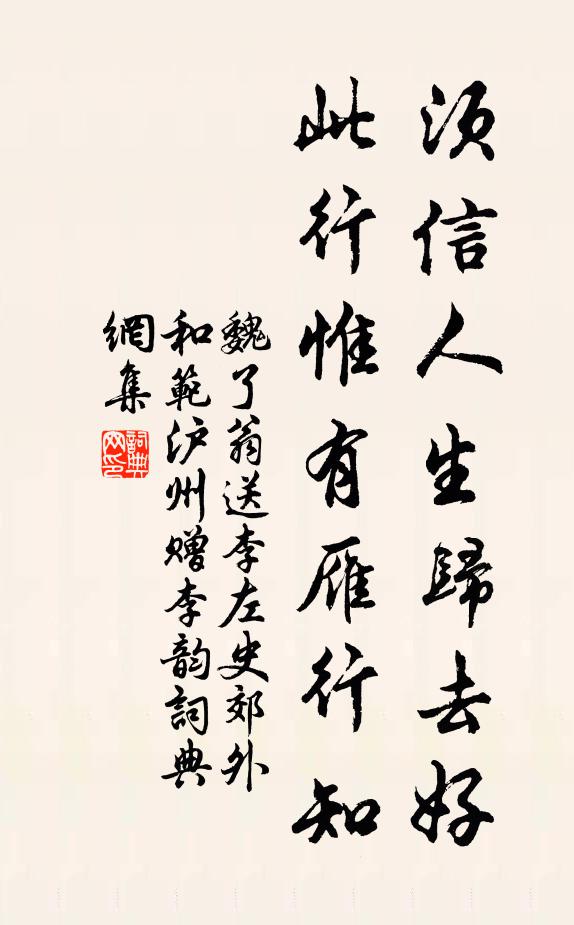 须信人生歸去好
此行惟有雁行知
魏了翁送李左史郊外
和範泸州赠李韵詞典
網集
詞典
网印